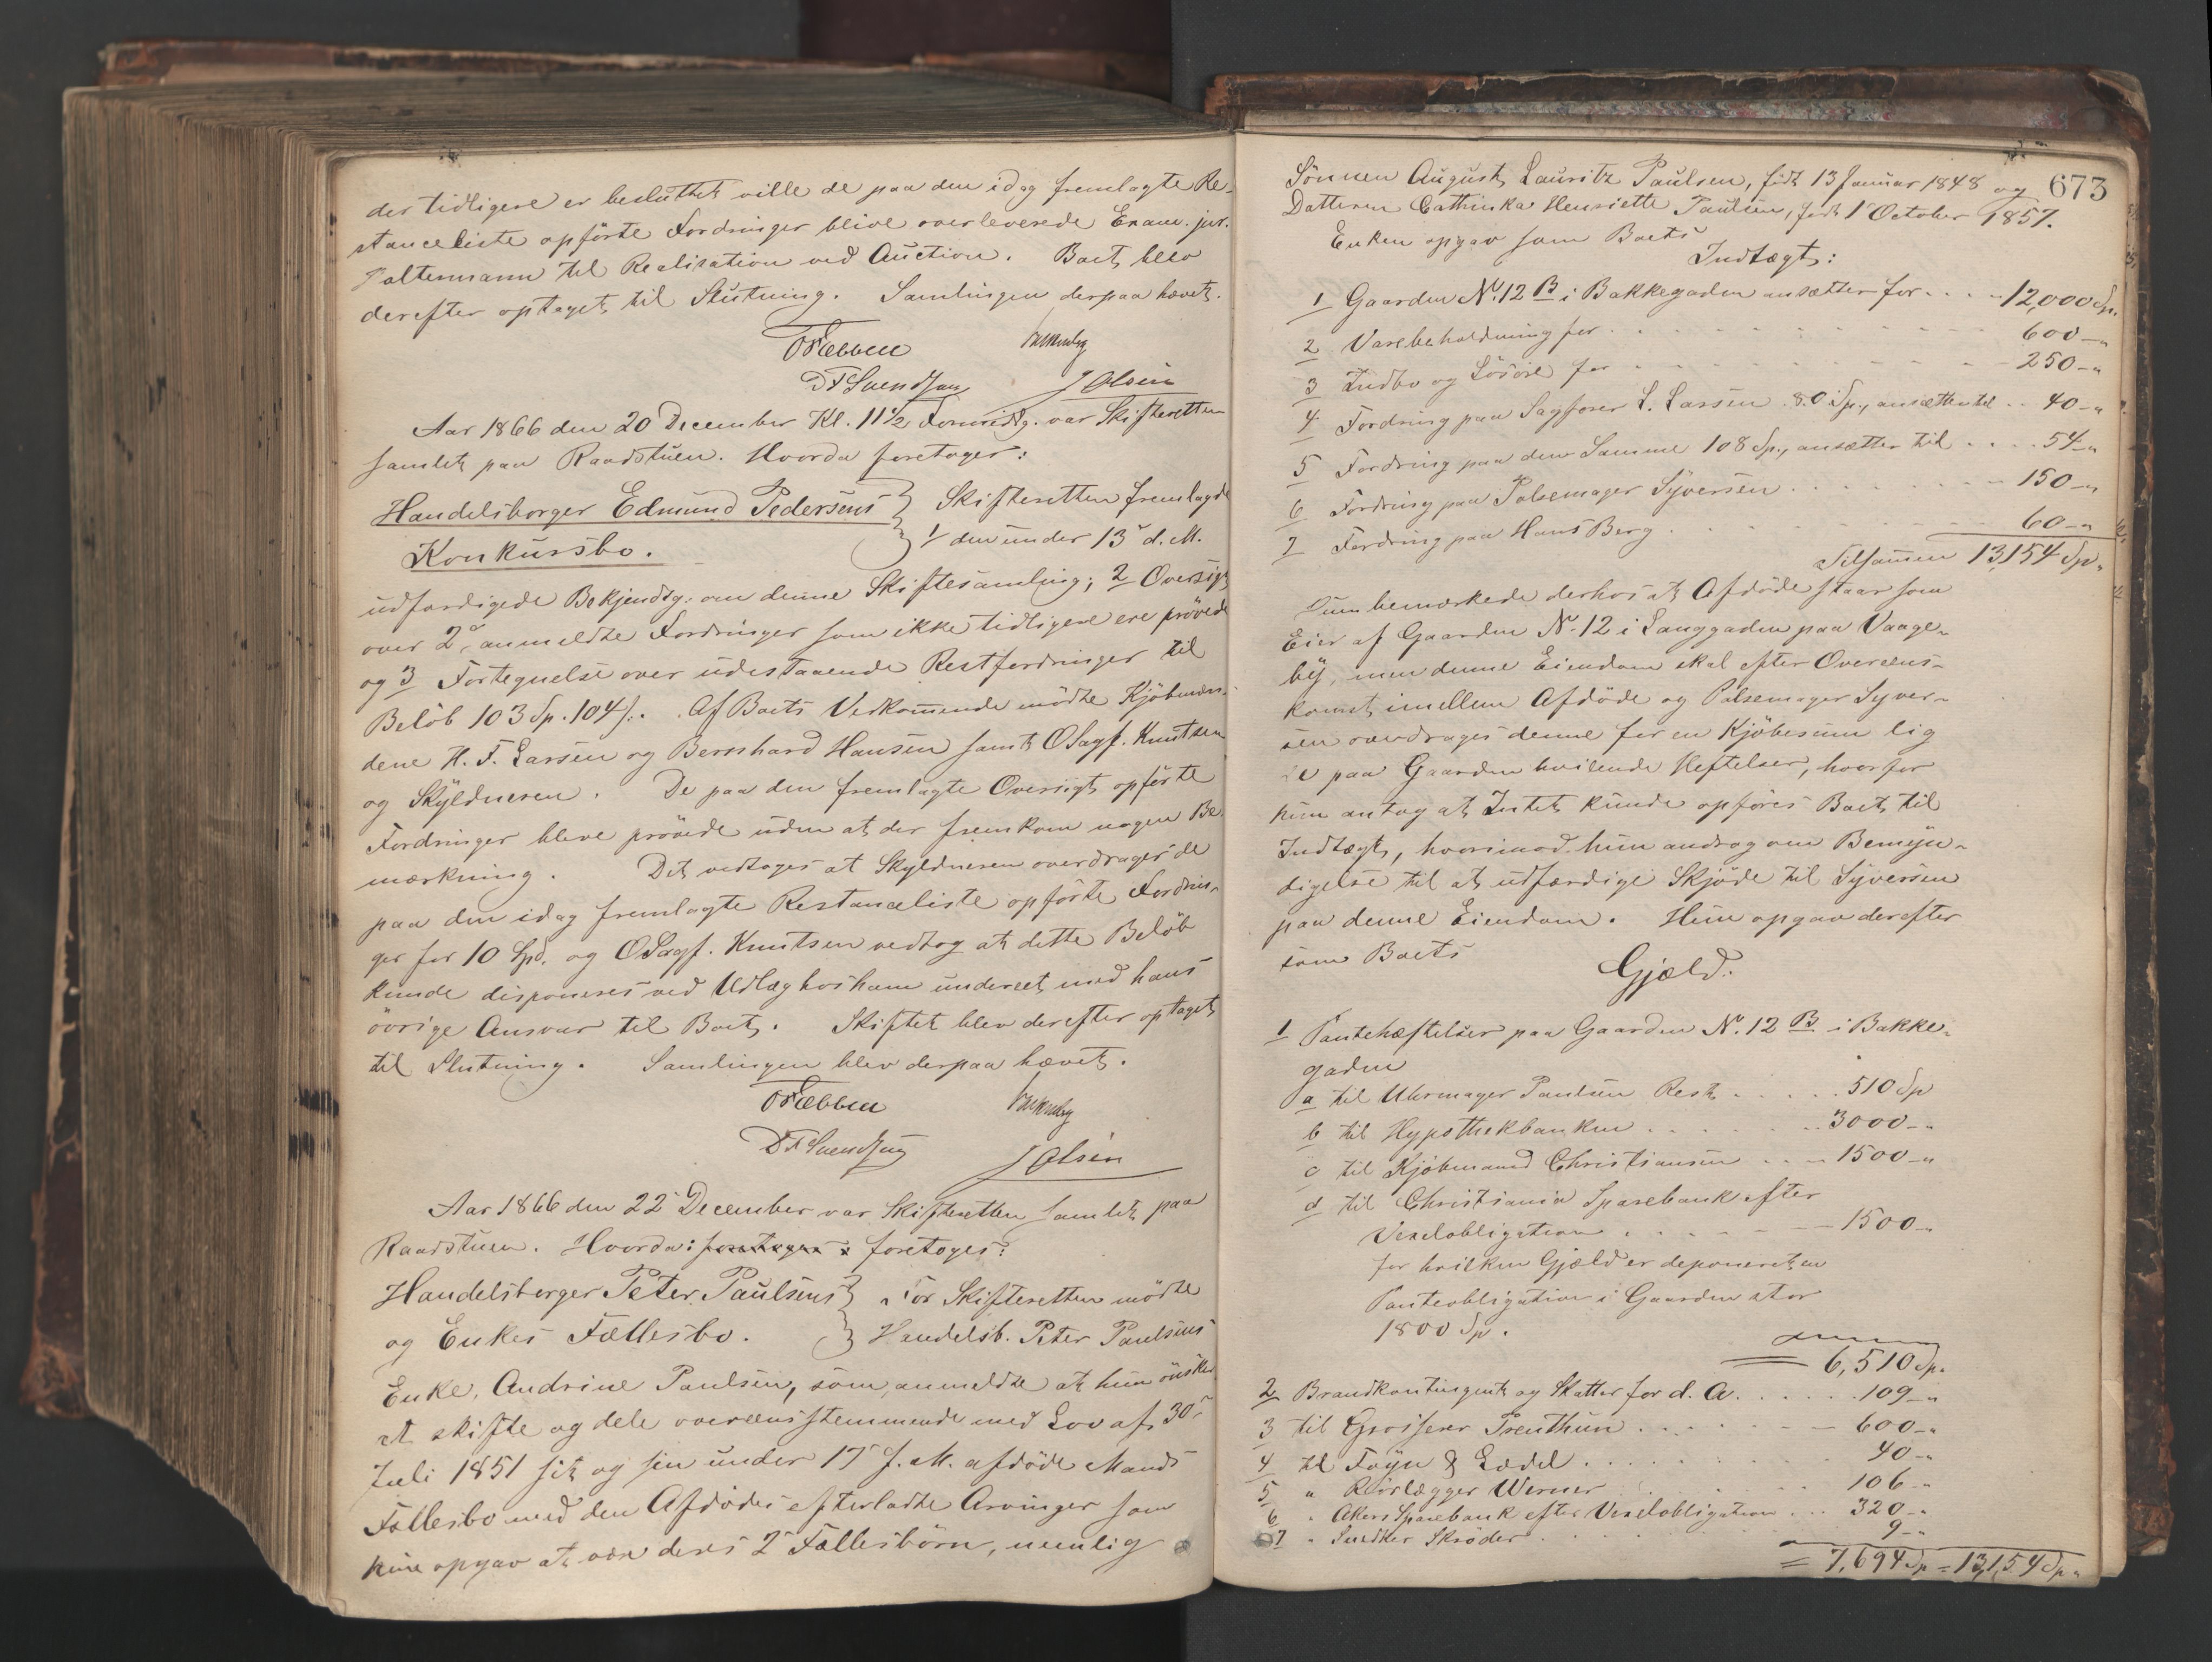 der tidligere er besluttet ville de paa den idag fremlagte Re-
stanceliste opförte Fordringer blive overleverede Exam. jur.
Poltermann til Realisation ved Auction. Boet blev
derefter optaget til Slutning. Samlingen derpaa hævet.
D F Svendsen J Olsen
Aar 1866 den 20 December Kl. 11 1/2 Formidg. var Skifteretten
samlet paa Raadstuen. Hvorda foretoges:
Handelsborger Edmund Pedersens } Skifteretten fremlagde
Konkursbo. } 1/ den under 13 d. M.
udfærdigede Bekjendtg. om denne Skiftesamling; 2 Oversigt
over 2 anmeldte Fordringer som ikke tidligere ere prövede
og 3 Fortegnelse over udestaaende Restfordringer til
Belöb 103 Sp. 104 s. Af Boets Vedkommende mödte Kjöbmæn-
dene H. F. Larsen og Bernhard Hansen samt OSagf. Knutsen
og Skyldneren. De paa den fremlagte Oversigt opförte
Fordringer bleve prövede uden at der fremkom nogen Be-
mærkning. Det vedtoges at Skyldneren overdrages de
paa den idag fremlagte Restanceliste opförte Fordrin-
ger for 10 Spd. og OSagf. Knutsen vedtog at dette Belöb
kunde disponeres ved Udlæg hos ham undereet med hans
övrige Ansvar til Boet. Skiftet blev derefter optaget
til Slutning. Samlingen blev derpaa hævet.
D F Svendsen J Olsen
Aar 1866 den 22 December var Skifteretten samlet paa
Raadstuen. Hvorda: foretoges: foretoges:
Handelsborger Peter Paulsens } For Skifteretten mödte
og Enkes Fællesbo. } Handelsb. Peter Paulsens
Enke, Andrine Paulsen, som anmeldte at hun önsker
at skifte og dele overeensstemmende med Lov af 30
Juli 1851 sit og sin under 17 f. M. afdöde Mands
Fællesbo med den Afdödes efterladte Arvinger som
hun opgav at være deres 2 Fællesbörn, nemlig
673
Sönnen August Lauritz Paulsen, födt 13 Januar 1848 og
Datteren Cathinka Henriette Paulsen, födt 1 October 1857.
Enken opgav som Boets
Indtægt:
1 Gaarden No. 12 B i Bakkegaden ansætter for . . . 12,000 Sp.
2 Varebeholdning for . . . 600 - "
3 Indbo og Lösöre for . . . 250 - "
4 Fordring paa Sagförer L. Larsen 80 Sp., ansættes til . . 40 - "
5 Fordring paa den Samme 108 Sp., ansætter til . . . 54 - "
6 Fordring paa Pölsemager Syversen . . . 150 - "
7 Fordring paa Hans Berg . . . 60 - "
Tilsammen 13,154 Sp.
Hun bemærkede derhos at Afdöde staar som
Eier af Gaarden No. 12 i Langgaden paa Vaage-
by, men denne Eiendom skal efter Overeens-
komst imellem Afdöde og Pölsemager Syver-
sen overdrages denne for en Kjöbesum lig
de paa Gaarden hvilende Heftelser, hvorfor
hun antog at Intet kunde opföres Boet til
Indtægt, hvorimod hun androg om Bemyn-
digelse til at udfærdige Skjöde til Syversen
paa denne Eiendom. Hun opgav derefter
som Boets
Gjæld:
1 Pantehæftelser paa Gaarden No. 12 B i Bakke-
gaden
a til Uhrmager Paulsen Rest . . . 510 Sp
b til Hypothekbanken . . . 3000 - "
c til Kjöbmand Christiansen . . . 1500 - "
d til Christiania Sparebank efter
Vexelobligation . . . 1500 - "
for hvilken Gjæld er deponeret en
Panteobligation i Gaarden stor
1800 Sp.
= 6,510 Sp.
2 Brandkontingent og Skatter for d. A. . . . 109 - "
3 til Grosserer Prenthun . . . 600 - "
4 til Föyn & Lædel . . . 40 - "
5 " Rörlægger Werner . . . 106 - "
6 " Akers Sparebank efter Vexelobligation . . . 320 - "
7 " Snedker Skröder . . . 9 - "
= 7,694 Sp = 13,154 Sp "